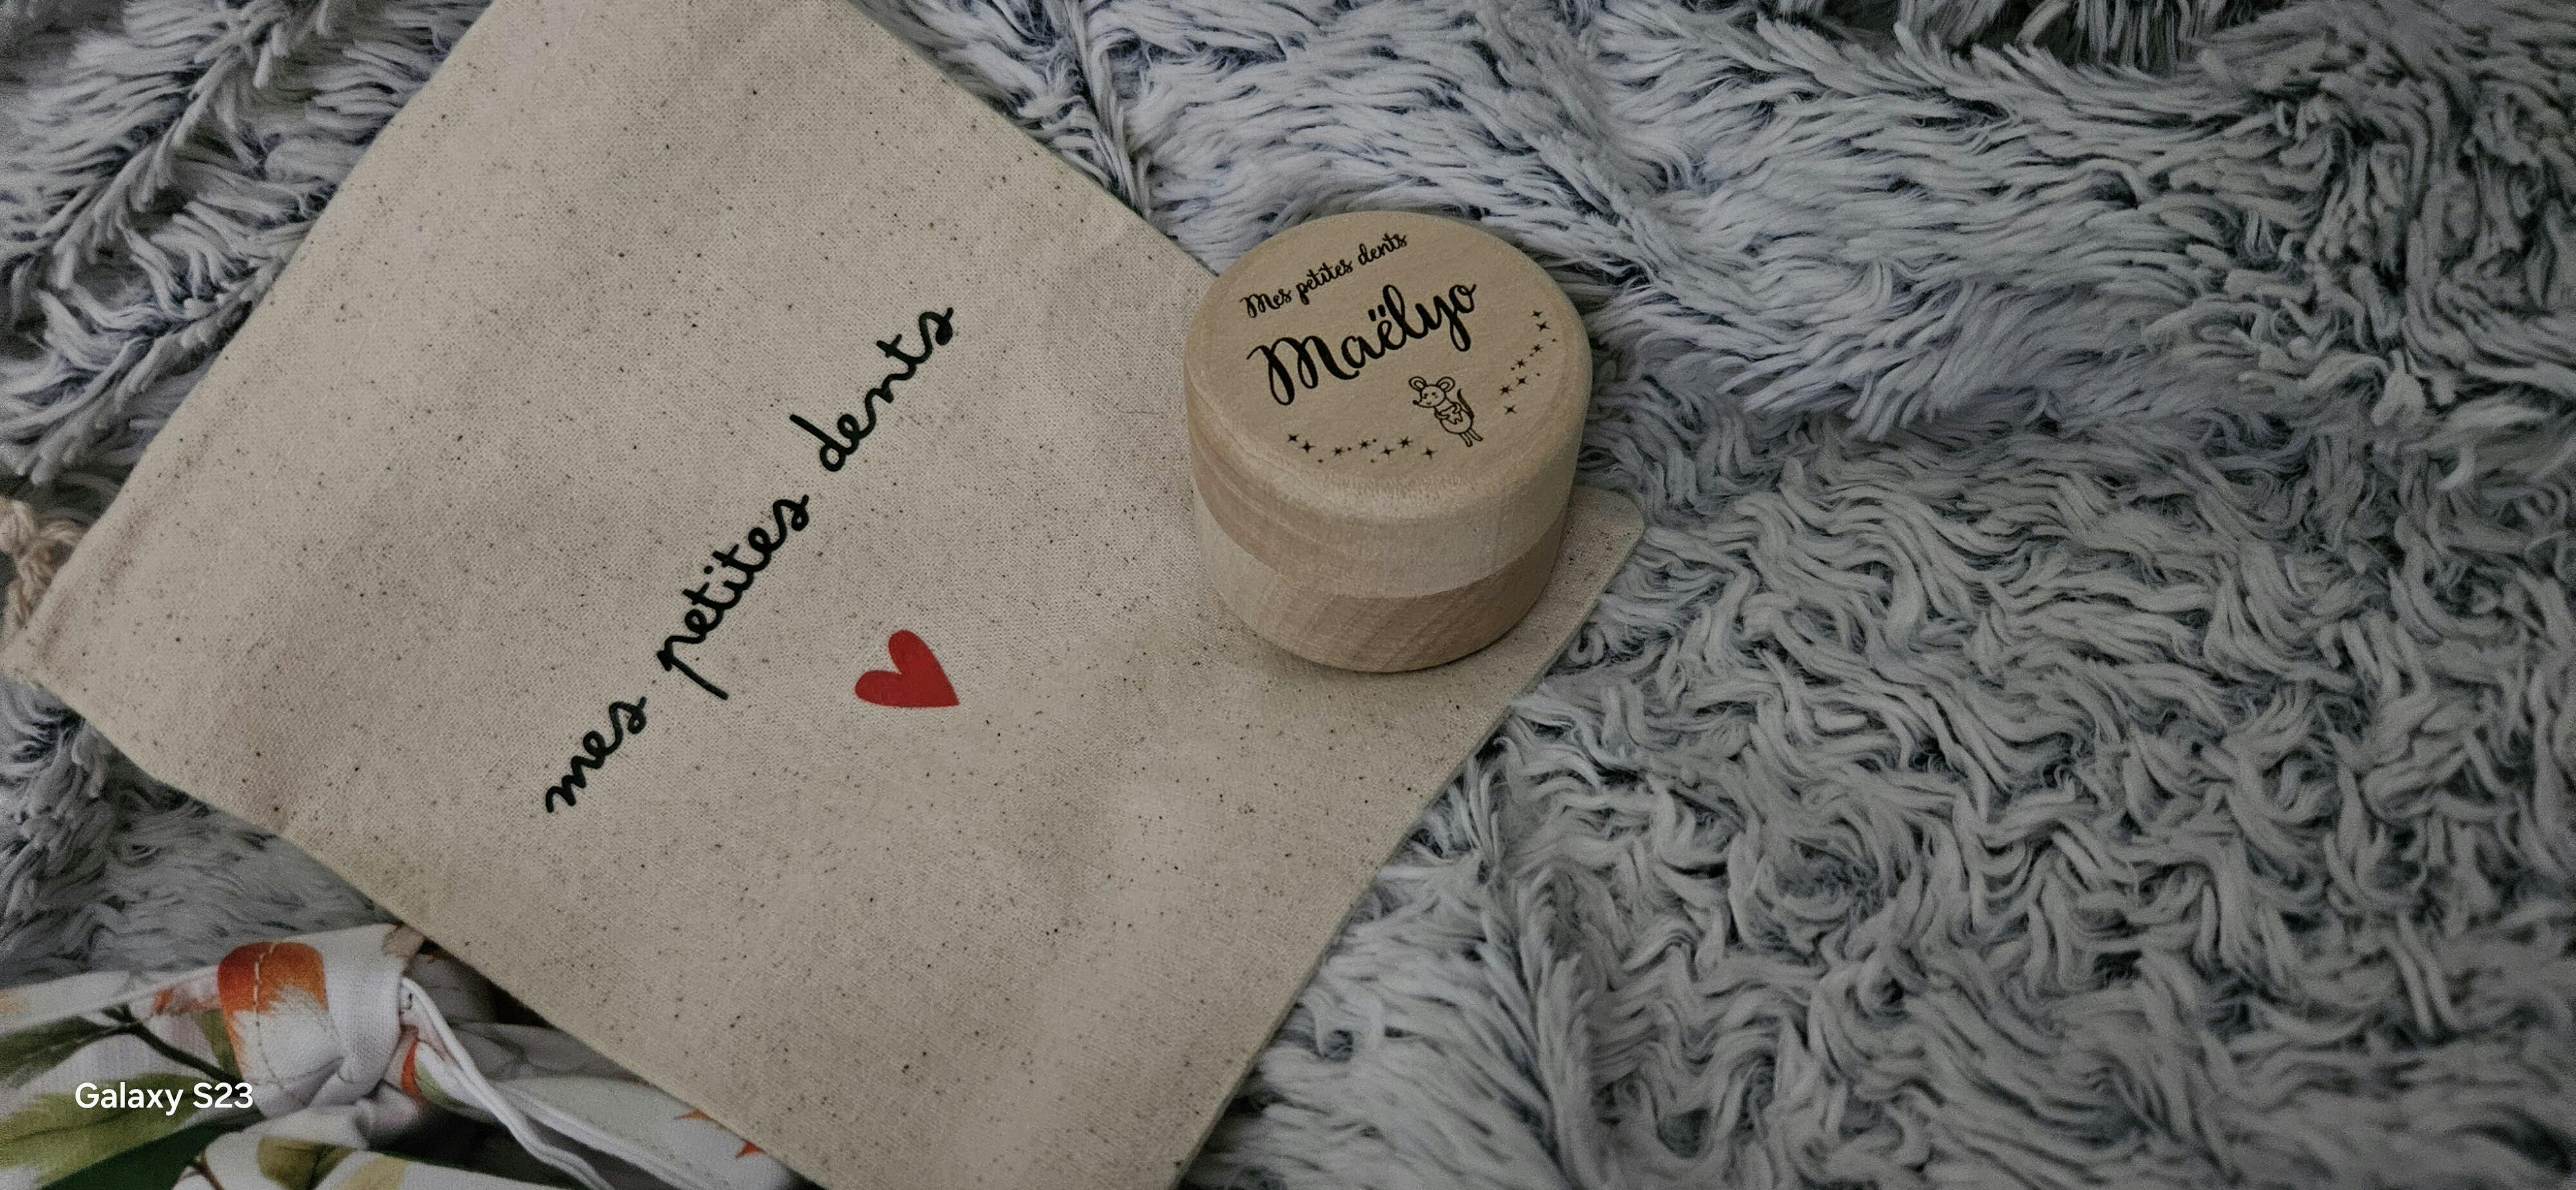 mes petites dents
Mes petites dents
Maëlyo
Galaxy S23